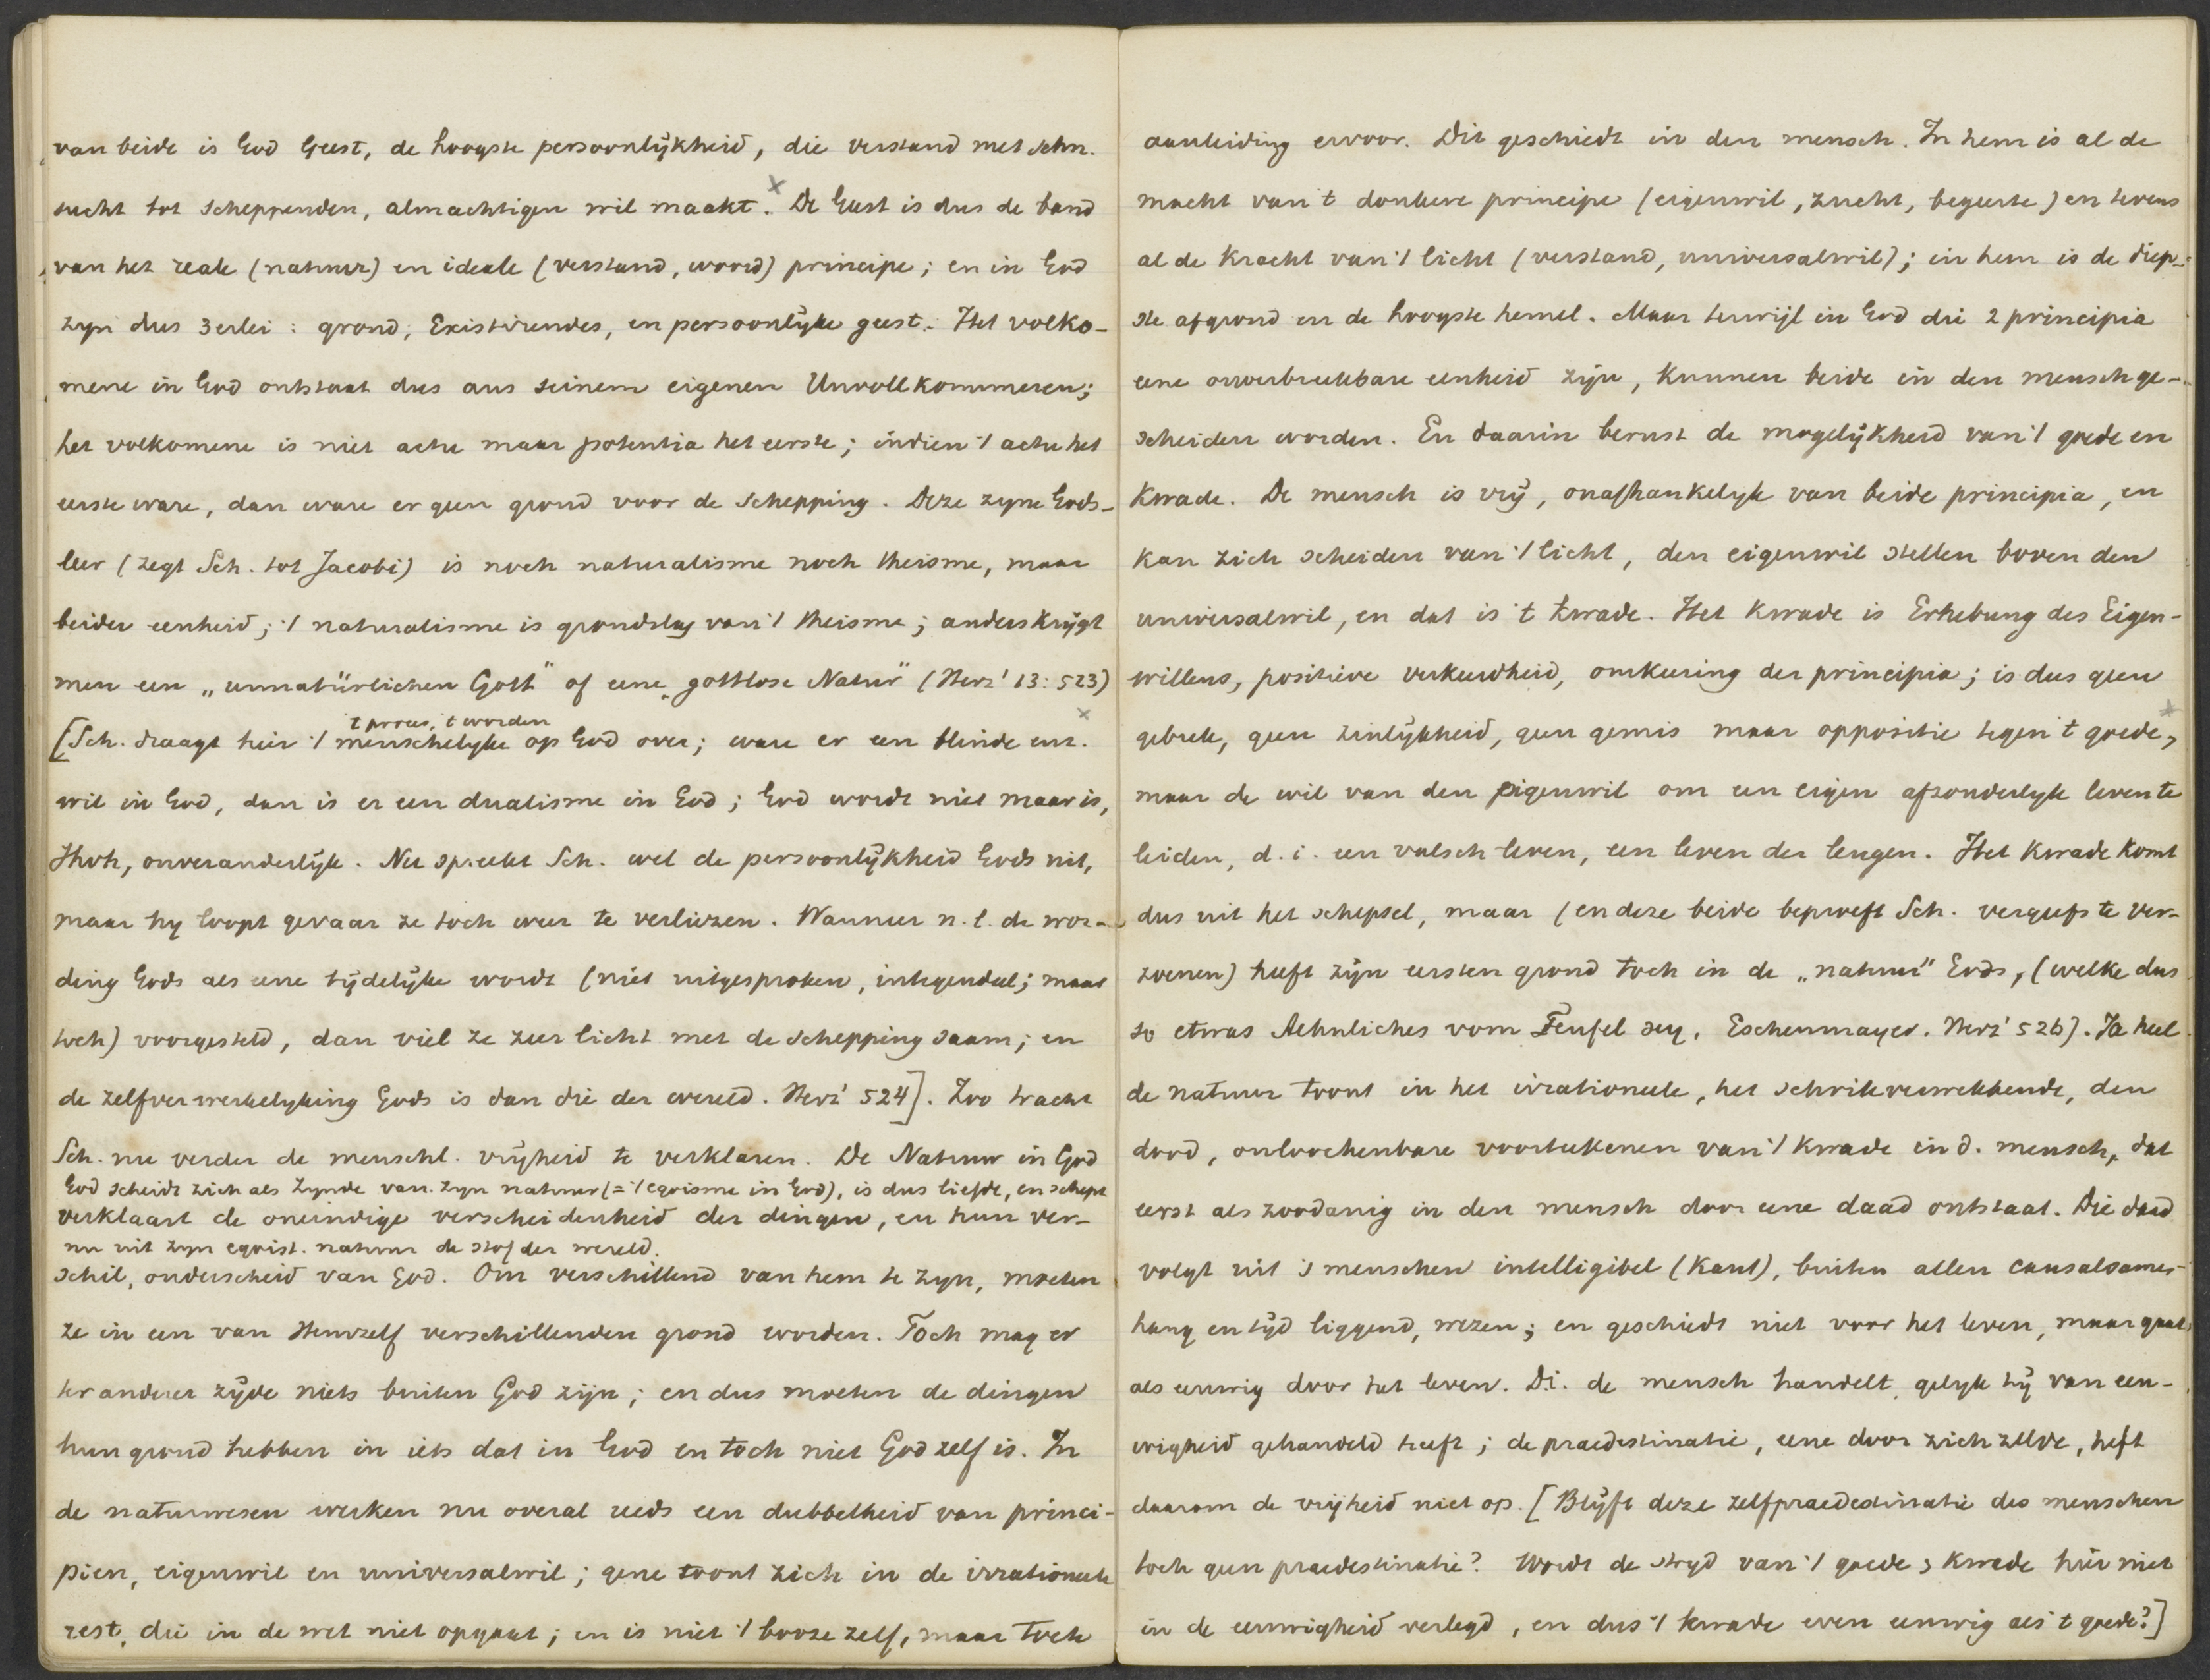 van beide is God Geest, de hoogste persoonlijkheid, die verstand met sehn-
sucht tot scheppenden, almachtigen wil maakt. x De Geest is dus de band
van het reale (natuur) en ideale (verstand, woord) principe; en in God
zyn dus 3erlei: grond, Existirendes, en persoonlijke geest. Het volko-
mene in God ontstaat dus aus seinem eigenen Unvollkommenen;
het volkomene is niet actu maar potentia het eerste; indien 't actu het
eerste ware, dan ware er geen grond voor de schepping. Deze zyne Gods-
leer (zegt Sch. tot Jacobi) is noch naturalisme noch theisme, maar
beider eenheid; 't naturalisme is grondslag van 't theisme; anders krijgt
men een „unnatürlichen Gott" of eene „gottlose Natur" (Herz' 13: 523)
't proces, 't worden x
[Sch. draagt hier 't menschelyke op God over; ware er een blinde
wil in God, dan is er een dualisme in God; God wordt niet maar is,
Jhvh, onveranderlijk. Nu spreekt Sch. wel de persoonlijkheid Gods uit,
maar hy loopt gevaar ze toch weer te verliezen. Wanneer n.l. de wor-
ding Gods als eene tijdelijke wordt (niet uitgesproken, integendeel; maar
toch) voorgesteld, dan viel ze zeer licht met de schepping saam; en
de zelfverwerkelyking Gods is dan die der wereld. Herz' 524]. Zoo tracht
Sch. nu verder de menschl. vrijheid te verklaren. De Natuur in God
God scheidt zich als Zynde van zyn natuur (= 't egoisme in God), is dus liefde, en schept
verklaart de oneindige verscheidenheid der dingen, en hun ver-
nu uit zyn egoist. natuur de stof der wereld.
schil, onderscheid van God. Om verschillend van hem te zyn, moeten
ze in een van Hemzelf verschillenden grond worden. Toch mag er
ter anderer zijde niets buiten God zijn; en dus moeten de dingen
hun grond hebben in iets dat in God en toch niet God zelf is. In
de natuurwesen werken nu overal reeds een dubbelheid van princi-
pien, eigenwil en universalwil; gene toont zich in de irrationeele
rest, die in de wet niet opgaat; en is niet 't booze zelf, maar toch
aanleiding ervoor. Dit geschiedt in den mensch. In hem is al de
macht van 't donkere principe (eigenwil, zucht, begeerte) en tevens
al de kracht van 't licht (verstand, universalwil); in hem is de diep-
ste afgrond en de hoogste hemel. Maar terwijl in God die 2 principia
eene onverbreekbare eenheid zijn, kunnen beide in den mensch ge-
scheiden worden. En daarin berust de mogelijkheid van 't goede en
kwade. De mensch is vrij, onafhankelyk van beide principia, en
kan zich scheiden van 't licht, den eigenwil stellen boven den
universalwil, en dat is 't kwade. Het kwade is Erhebung des Eigen-
willens, positieve verkeerdheid, omkeering der principia; is dus geen
gebrek, geen zinlijkheid, geen gemis maar oppositie tegen 't goede, x
maar de wil van den eigenwil om een eigen afzonderlyk leven te
leiden, d.i. een valsch leven, een leven der leugen. Het kwade komt
dus uit het schepsel, maar (en deze beide beproeft Sch. vergeefs te ver-
zoenen) heeft zijn eersten grond toch in de „natuur" Gods, (welke dus
so etwas Aehnliches vom Teufel sey. Eschenmayer. Herz' 526). Ja heel
de natuur toont in het irrationeele, het schrikverwekkende, den
dood, onloochenbare voorteekenen van 't kwade in d. mensch, dat
eerst als zoodanig in den mensch door eene daad ontstaat. Die daad
volgt uit 's menschen intelligibel (Kant), buiten allen causalsamen-
hang en tijd liggend, wezen; en geschiedt niet voor het leven, maar gaat
als eeuwig door het leven. D.i. de mensch handelt, gelyk hij van eeu-
wigheid gehandeld heeft; de praedestinatie, eene door zich zelve, heft
daarom de vrijheid niet op. [Blijft deze zelfpraedestinatie des menschen
toch geen praedestinatie? Wordt de strijd van 't goede & kwade hier niet
in de eeuwigheid verlegd, en dus 't kwade even eeuwig als 't goede?]